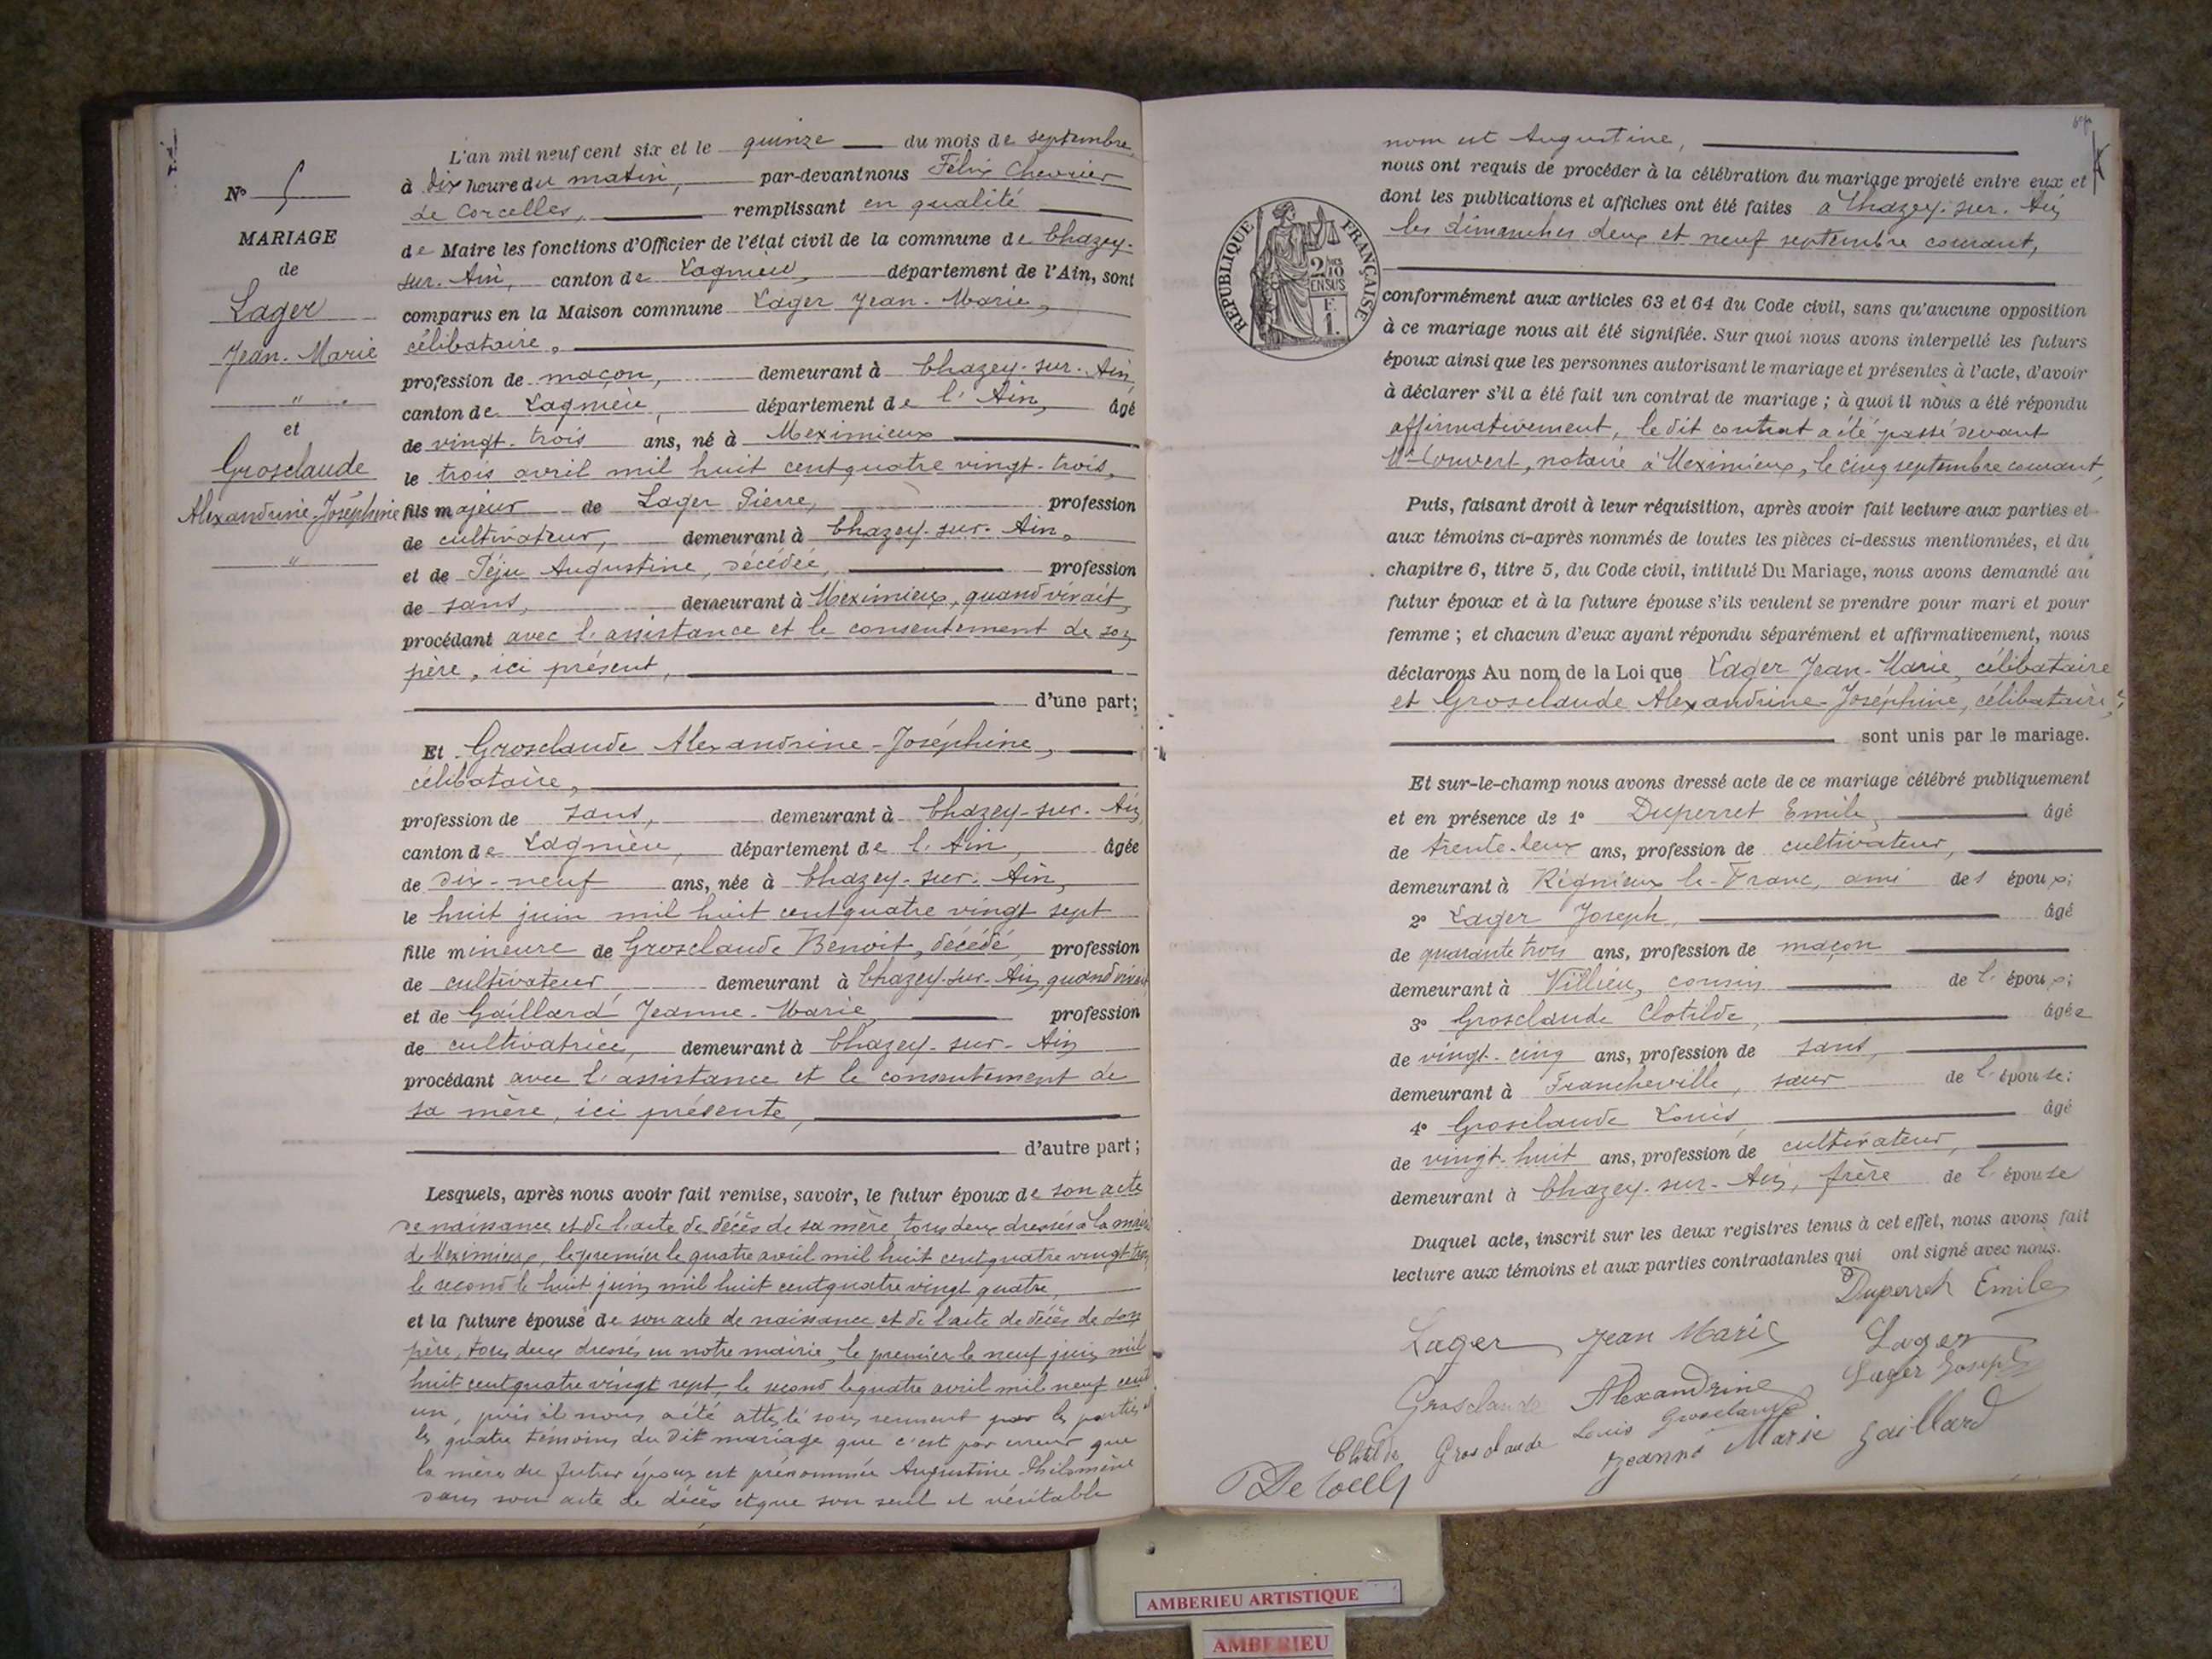 N° 5
MARIAGE
de
Lager
Jean-Marie
"
et
Grosclaude
Alexandrine-Joséphine
"
L'an mil neuf cent six et le quinze du mois de septembre,
à dix heure du matin, par-devant nous Félix Chevrier
de Corcelles, remplissant en qualité
de Maire les fonctions d'Officier de l'état civil de la commune de Chazey-
sur-Ain, canton de Lagnieu, département de l'Ain, sont
comparus en la Maison commune Lager Jean-Marie,
célibataire,
profession de maçon, demeurant à Chazey-sur-Ain,
canton de Lagnieu, département de l'Ain, âgé
de vingt-trois ans, né à Meximieux
le trois avril mil huit cent quatre vingt-trois,
fils majeur de Lager Pierre, profession
de cultivateur, demeurant à Chazey-sur-Ain,
et de Péju Augustine, décédée, profession
de sans, demeurant à Meximieux, quand vivait,
procédant avec l'assistance et le consentement de son
père, ici présent,
d'une part;
Et Grosclaude Alexandrine-Joséphine,
célibataire,
profession de sans, demeurant à Chazey-sur-Ain
canton de Lagnieu, département de l'Ain, âgée
de dix-neuf ans, née à Chazey-sur-Ain,
le huit juin mil huit cent quatre vingt sept
fille mineure de Grosclaude Benoit, décédé, profession
de cultivateur, demeurant à Chazey-sur-Ain, quand vivait
et de Gaillard Jeanne-Marie, profession
de cultivatrice, demeurant à Chazey-sur-Ain
procédant avec l'assistance et le consentement de
sa mère, ici présente,
d'autre part;
Lesquels, après nous avoir fait remise, savoir, le futur époux de son acte
de naissance et de l'acte de décès de sa mère, tous deux dressés à la mairie
de Meximieux, le premier le quatre avril mil huit cent quatre vingt trois,
le second le huit juin mil huit cent quatre vingt quatre,
et la future épouse de son acte de naissance et de l'acte de décès de son
père, tous deux dressés en notre mairie, le premier le neuf juin mil
huit cent quatre vingt sept, le second le quatre avril mil neuf cent
un, puis il nous a été attesté sous serment par les parties et
les quatre témoins du dit mariage que c'est par erreur que
la mère du futur époux est prénommée Augustine-Philomène
dans son acte de décès et que son seul et véritable
nom est Augustine,
nous ont requis de procéder à la célébration du mariage projeté entre eux et
dont les publications et affiches ont été faites à Chazey-sur-Ain
les dimanches deux et neuf septembre courant,
RÉPUBLIQUE FRANÇAISE
2/10
EN SUS
F.
1.
conformément aux articles 63 et 64 du Code civil, sans qu'aucune opposition
à ce mariage nous ait été signifiée. Sur quoi nous avons interpellé les futurs
époux ainsi que les personnes autorisant le mariage et présentes à l'acte, d'avoir
à déclarer s'il a été fait un contrat de mariage; à quoi il nous a été répondu
affirmativement, le dit contrat a été passé devant
Me Convert, notaire à Meximieux, le cinq septembre courant,
Puis, faisant droit à leur réquisition, après avoir fait lecture aux parties et
aux témoins ci-après nommés de toutes les pièces ci-dessus mentionnées, et du
chapitre 6, titre 5, du Code civil, intitulé Du Mariage, nous avons demandé au
futur époux et à la future épouse s'ils veulent se prendre pour mari et pour
femme; et chacun d'eux ayant répondu séparément et affirmativement, nous
déclarons Au nom de la Loi que Lager Jean-Marie, célibataire
et Grosclaude Alexandrine-Joséphine, célibataire,
sont unis par le mariage.
Et sur-le-champ nous avons dressé acte de ce mariage célébré publiquement
et en présence de 1° Duperret Emile, âgé
de trente-deux ans, profession de cultivateur,
demeurant à Rignieux-le-Franc, ami des époux;
2° Lager Joseph, âgé
de quarante trois ans, profession de maçon
demeurant à Villieu, cousin de l'époux;
3° Grosclaude Clotilde, âgée
de vingt-cinq ans, profession de sans,
demeurant à Francheville, sœur de l'épouse;
4° Grosclaude Louis, âgé
de vingt-huit ans, profession de cultivateur,
demeurant à Chazey-sur-Ain, frère de l'épouse
Duquel acte, inscrit sur les deux registres tenus à cet effet, nous avons fait
lecture aux témoins et aux parties contractantes qui ont signé avec nous.
Duperret Emile
Lager Jean Marie Lager
Grosclaude Alexandrine Lager Joseph
Clotilde Grosclaude Louis Grosclaude
Jeanne Marie Gaillard
AMBERIEU ARTISTIQUE
AMBERIEU